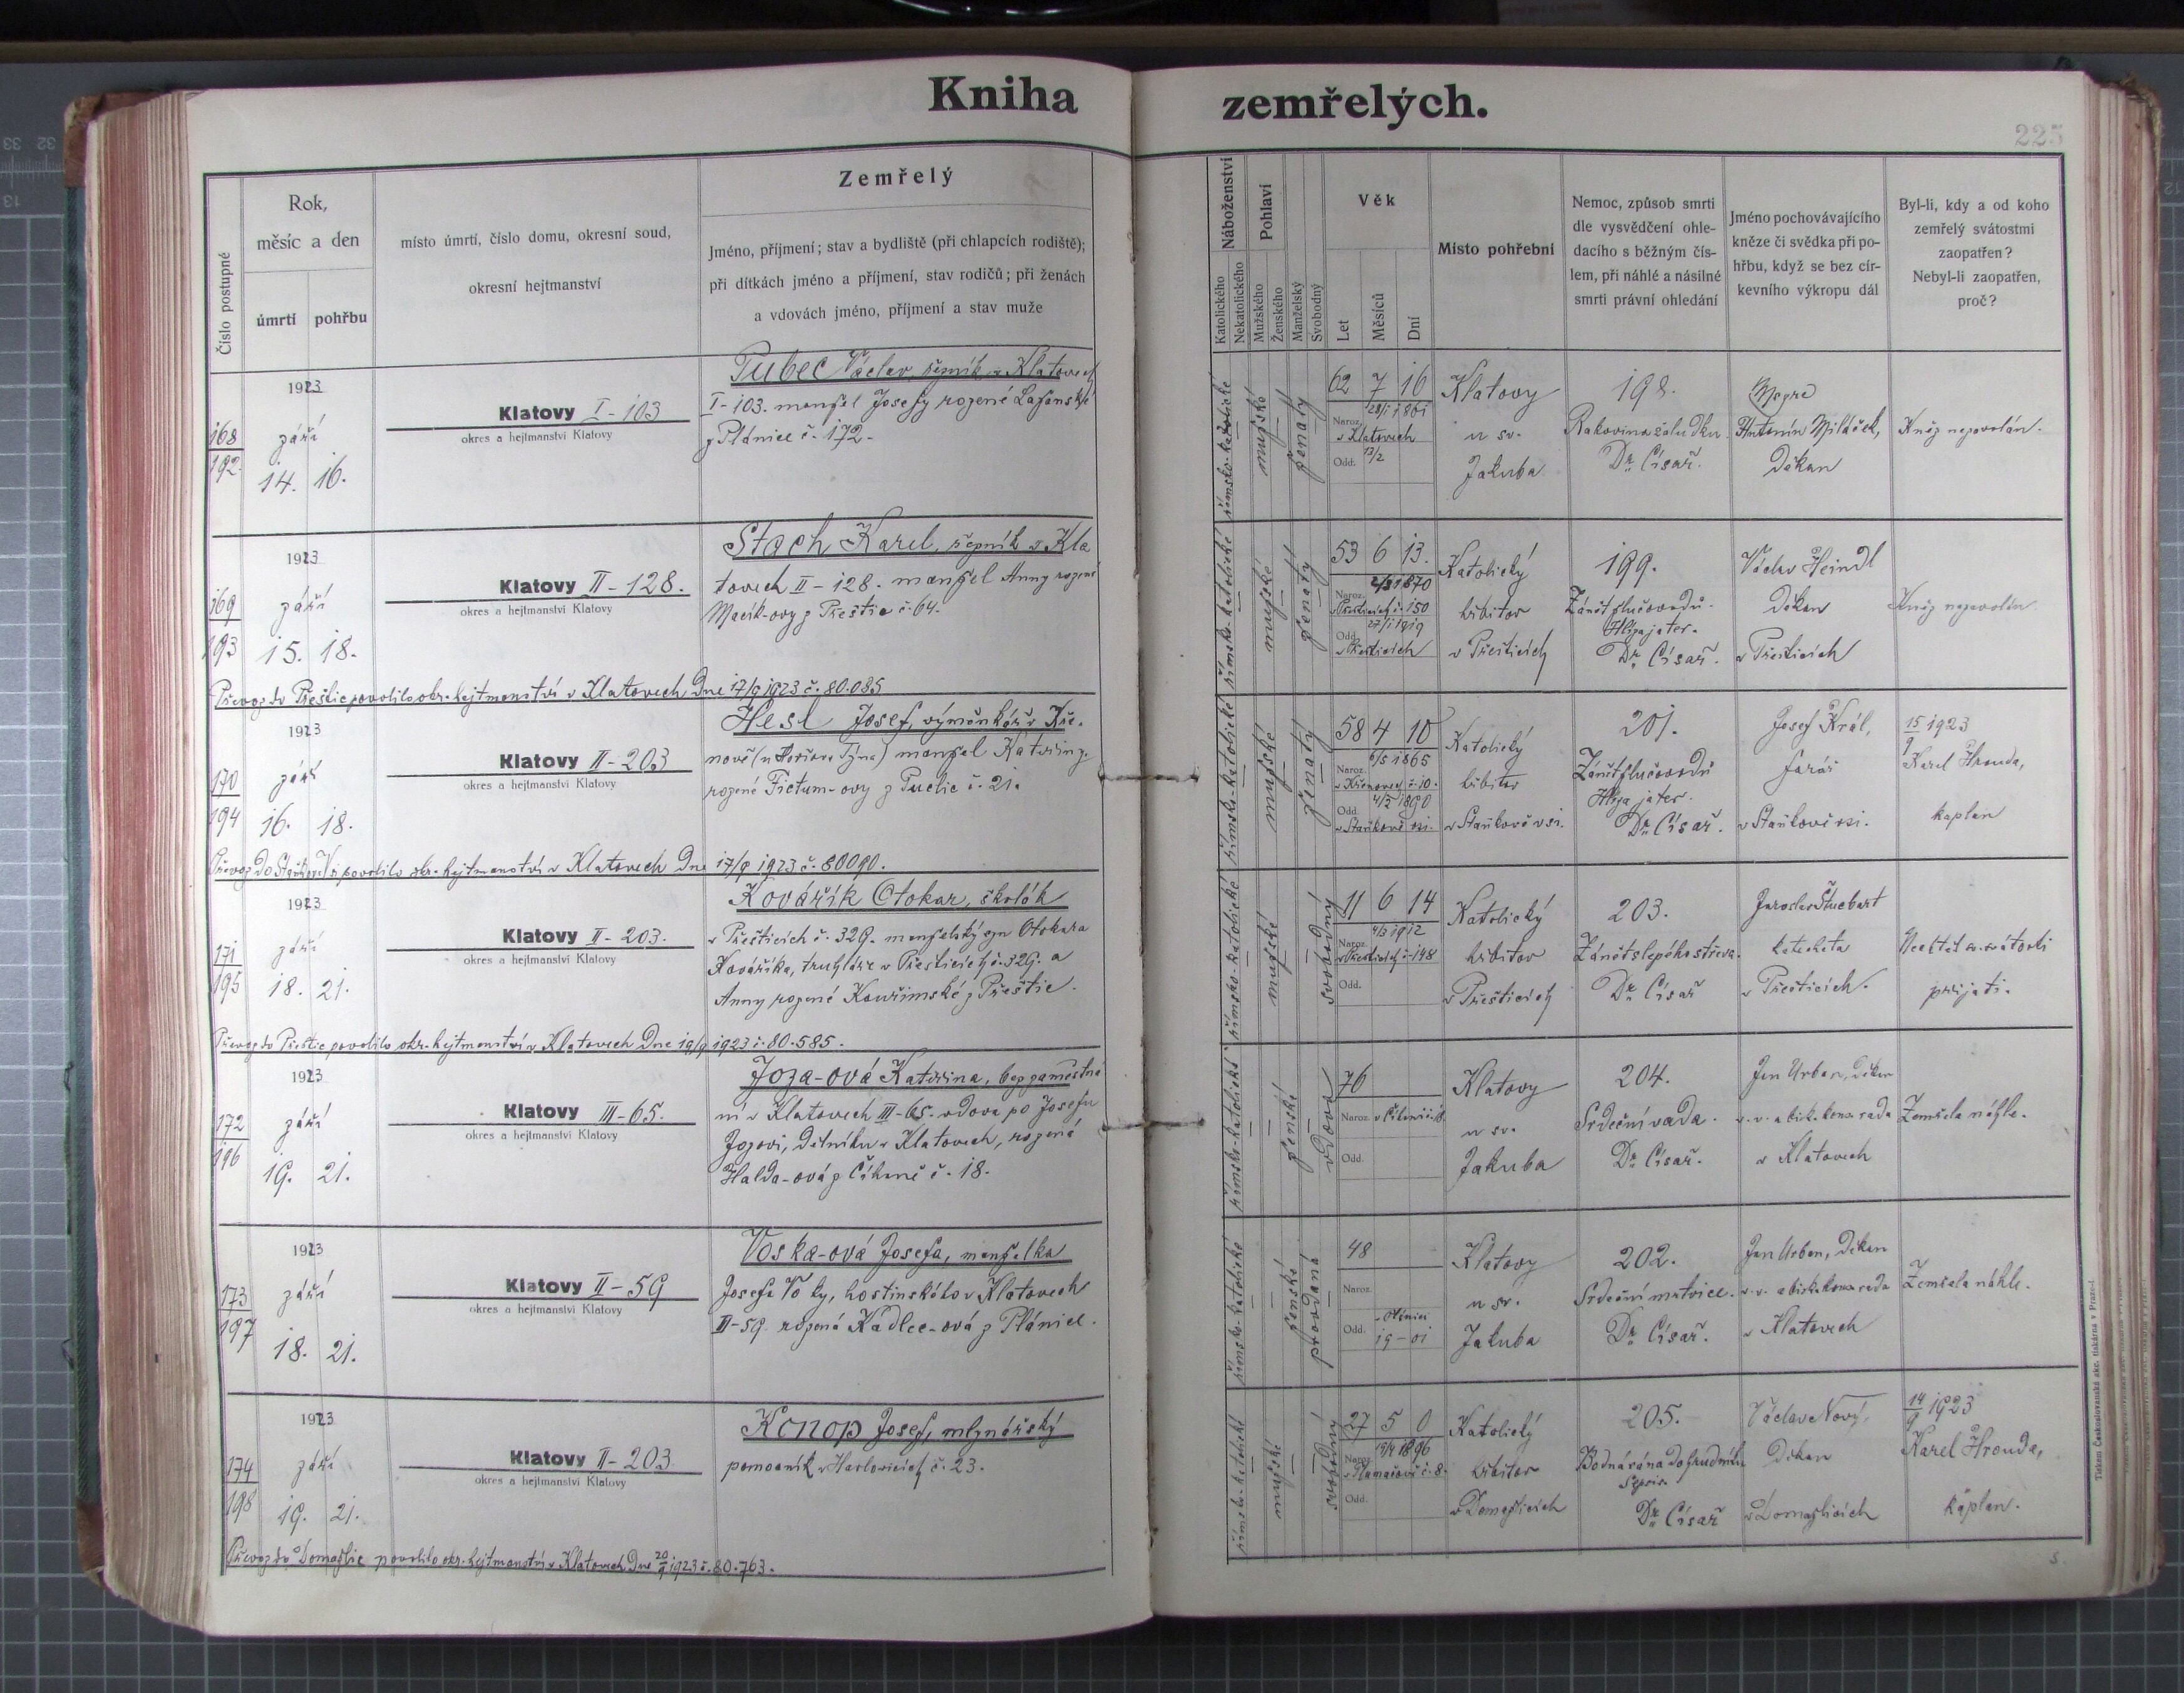 Kniha zemřelých.
225
Číslo postupné
Rok,
měsíc a den
úmrtí
pohřbu
místo úmrtí, číslo domu, okresní soud,
okresní hejtmanství
Zemřelý
Jméno, příjmení; stav a bydliště (při chlapcích rodiště);
při dítkách jméno a příjmení, stav rodičů; při ženách
a vdovách jméno, příjmení a stav muže
Náboženství
Katolického
Nekatolického
Pohlaví
Mužského
Ženského
Manželský
Svobodný
Věk
Let
Měsíců
Dní
Místo pohřební
Nemoc, způsob smrti
dle vysvědčení ohle-
dacího s běžným čís-
lem, při náhlé a násilné
smrti právní ohledání
Jméno pochovávajícího
kněze či svědka při po-
hřbu, když se bez cír-
kevního výkropu dál
Byl-li, kdy a od koho
zemřelý svátostmi
zaopatřen?
Nebyl-li zaopatřen,
proč?
168
192
1923
září
14. 16.
Klatovy I-103
okres a hejtmanství Klatovy
Václav, řezník v Klatovech
I-103. manžel Josefy rozené
z Plánice č. 172.
římsko-katolické
mužské
ženatý
62 7 16
28/1 1861
Naroz. v Klatovech
Odd. 13/2
Klatovy
u sv.
Jakuba
198.
Rakovina žaludku.
Dr. Císař.
Msgre
Antonín Miláček,
děkan
Kněz nepovolán.
169
193
1923
září
15. 18.
Klatovy II-128.
okres a hejtmanství Klatovy
Stach Karel, řezník v Kla
tovech II-128. manžel Anny rozené
Macík-ovy z Přeštic č. 64.
Převoz do Přeštic povolilo okr. hejtmanství v Klatovech dne 17/9 1923 č. 80.085
římsko-katolické
mužské
ženatý
53 6 13.
2/3 1870
Naroz. v Přešticích č. 150
27/1 1919
Odd. v Přešticích
Katolický
hřbitov
v Přešticích
199.
Zánět žlučovodů.
Hlíza jater.
Dr. Císař.
Václav Heindl
děkan
v Přešticích
Kněz nepovolán
170
194
1923
září
16. 18.
Klatovy II-203
okres a hejtmanství Klatovy
Hesl Josef, výměnkář v Kře-
nově (u Horšova Týna) manžel Kateřiny
rozené Fictum-ovy z Puclic č. 21.
Převoz do Staňkova Vsi povolilo okr. hejtmanství v Klatovech dne 17/9 1923 č. 80090.
římsko-katolické
mužské
ženatý
58 4 10
6/5 1865
Naroz. v Křenovech č. 10.
4/2 1890
Odd. v Staňkově vsi.
Katolický
hřbitov
v Staňkově vsi.
201.
Zánět žlučovodů
Hlíza jater.
Dr. Císař.
Josef Král,
farář
v Staňkově vsi.
15/9 1923
Karel Hrouda,
kaplan
171
195
1923
září
18. 21.
Klatovy II-203.
okres a hejtmanství Klatovy
Kovářík Otokar, školák
v Přešticích č. 329. manželský syn Otokara
Kováříka, truhláře v Přešticích č. 329. a
Anny rozené Kouřimské z Přeštic.
Převoz do Přeštic povolilo okr. hejtmanství v Klatovech dne 19/9 1923 č. 80.585.
římsko-katolické
mužské
svobodný
11 6 14
4/3 1912
Naroz. v Přešticích č. 148
Odd.
Katolický
hřbitov
v Přešticích
203.
Zánět slepého střeva.
Dr. Císař
Jaroslav
katecheta
v Přešticích.
Nechtěl sv. svátosti
přijati.
172
196
1923
září
19. 21.
Klatovy III-65.
okres a hejtmanství Klatovy
Joza-ová Kateřina, bez zaměstná
ní v Klatovech III-65. vdova po Josefu
Jozovi, dělníku v Klatovech, rozená
Halda-ová z Číhaně č. 18.
římsko-katolické
ženské
vdova
76
Naroz.
Odd.
Klatovy
u sv.
Jakuba
204.
Srdeční vada.
Dr. Císař.
Jan Urban, děkan
v. v. a bisk. kons. rada
v Klatovech
Zemřela náhle.
173
197
1923
září
18. 21.
Klatovy II-59
okres a hejtmanství Klatovy
Voska-ová Josefa, manželka
Josefa Vosky, hostinského v Klatovech
II-59. rozená Kadlec-ová z Plánice.
římsko-katolické
ženské
provdaná
48
Naroz.
Odd. v Plánici
19-01
Klatovy
u sv.
Jakuba
202.
Srdeční mrtvice.
Dr. Císař.
Jan Urban, děkan
v. v. a bisk. kons. rada
v Klatovech
Zemřela náhle.
174
198
1923
září
19. 21.
Klatovy II-203
okres a hejtmanství Klatovy
Konop Josef, mlynářský
pomocník v Havlovicích č. 23.
Převoz do Domažlic povolilo okr. hejtmanství v Klatovech dne 20/9 1923 č. 80.763.
římsko-katolické
mužské
svobodný
27 5 0
19/4 1896
Naroz.
Odd.
Katolický
hřbitov
v Domažlicích
205.
Bodná rána do hrudníku
Sepsis.
Dr. Císař
Václav Nový,
děkan
v Domažlicích
14/9 1923
Karel Hrouda,
kaplan.